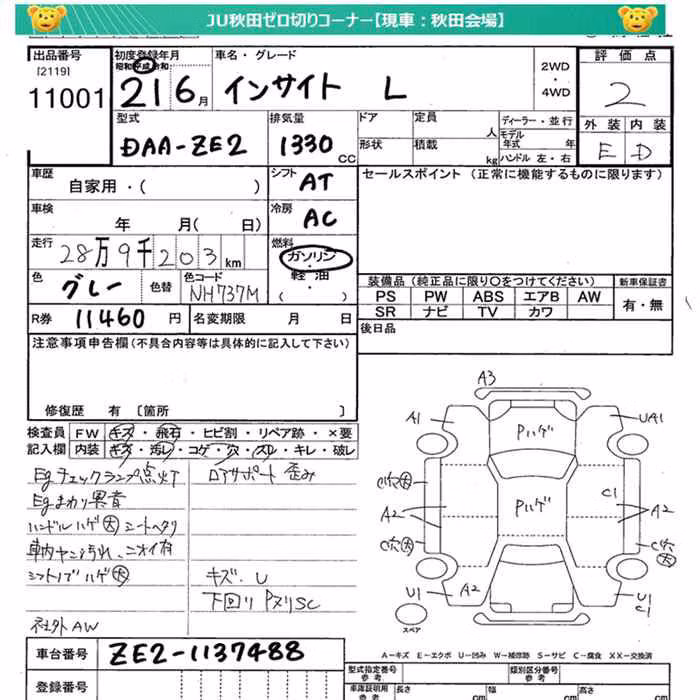 JU秋田ゼロ切りコーナー【現車：秋田会場】
出品番号 [2119] 11001
初度登録年月 昭和 平成 令和 21 6月
車名・グレード インサイト L
2WD・4WD
評価点 2
外装 内装
E D
型式 DAA-ZE2
排気量 1330 CC
ドア 定員 人
形状 積載 kg
ディーラー・並行
モデル年式 年
ハンドル 左・右
車歴 自家用・( )
シフト AT
セールスポイント (正常に機能するものに限ります)
車検 年 月( 日)
冷房 AC
走行 28万9千203km
燃料 ガソリン・軽油・( )
色 グレー 色替 色コード NH737M
装備品 (純正品に限り〇をつけてください) 新車保証書
PS PW ABS エアB AW 有・無
SR ナビ TV カワ
R券 11460円 名変期限 月 日
後日品
注意事項申告欄(不具合内容等は具体的に記入して下さい)
修復歴 有 [箇所 ]
検査員 FW キズ・飛石・ヒビ割・リペア跡・×要
記入欄 内装 キズ・汚レ・コゲ・穴・スレ・キレ・破レ
Egチェックランプ点灯 ロアサポート歪み
Egまわり異音
ハンドルハゲ大 シートヘタリ
車内ヤニ汚れ、ニオイ有
シフトノブハゲ大 キズ、U
下回りPヌリSC
社外AW
A3
A1 Pハゲ UA1
C穴大 Pハゲ C1
A2 A2
C穴大 C穴大
U1 A2 U1
C1
スペア
A-キズ E-エクボ U-凹み W-補修跡 S-サビ C-腐食 XX-交換済
車台番号 ZE2-1137488
型式指定番号 参考 類別区分番号 参考
登録番号
車庫証明用 参考 長さ cm 幅 cm 高さ cm